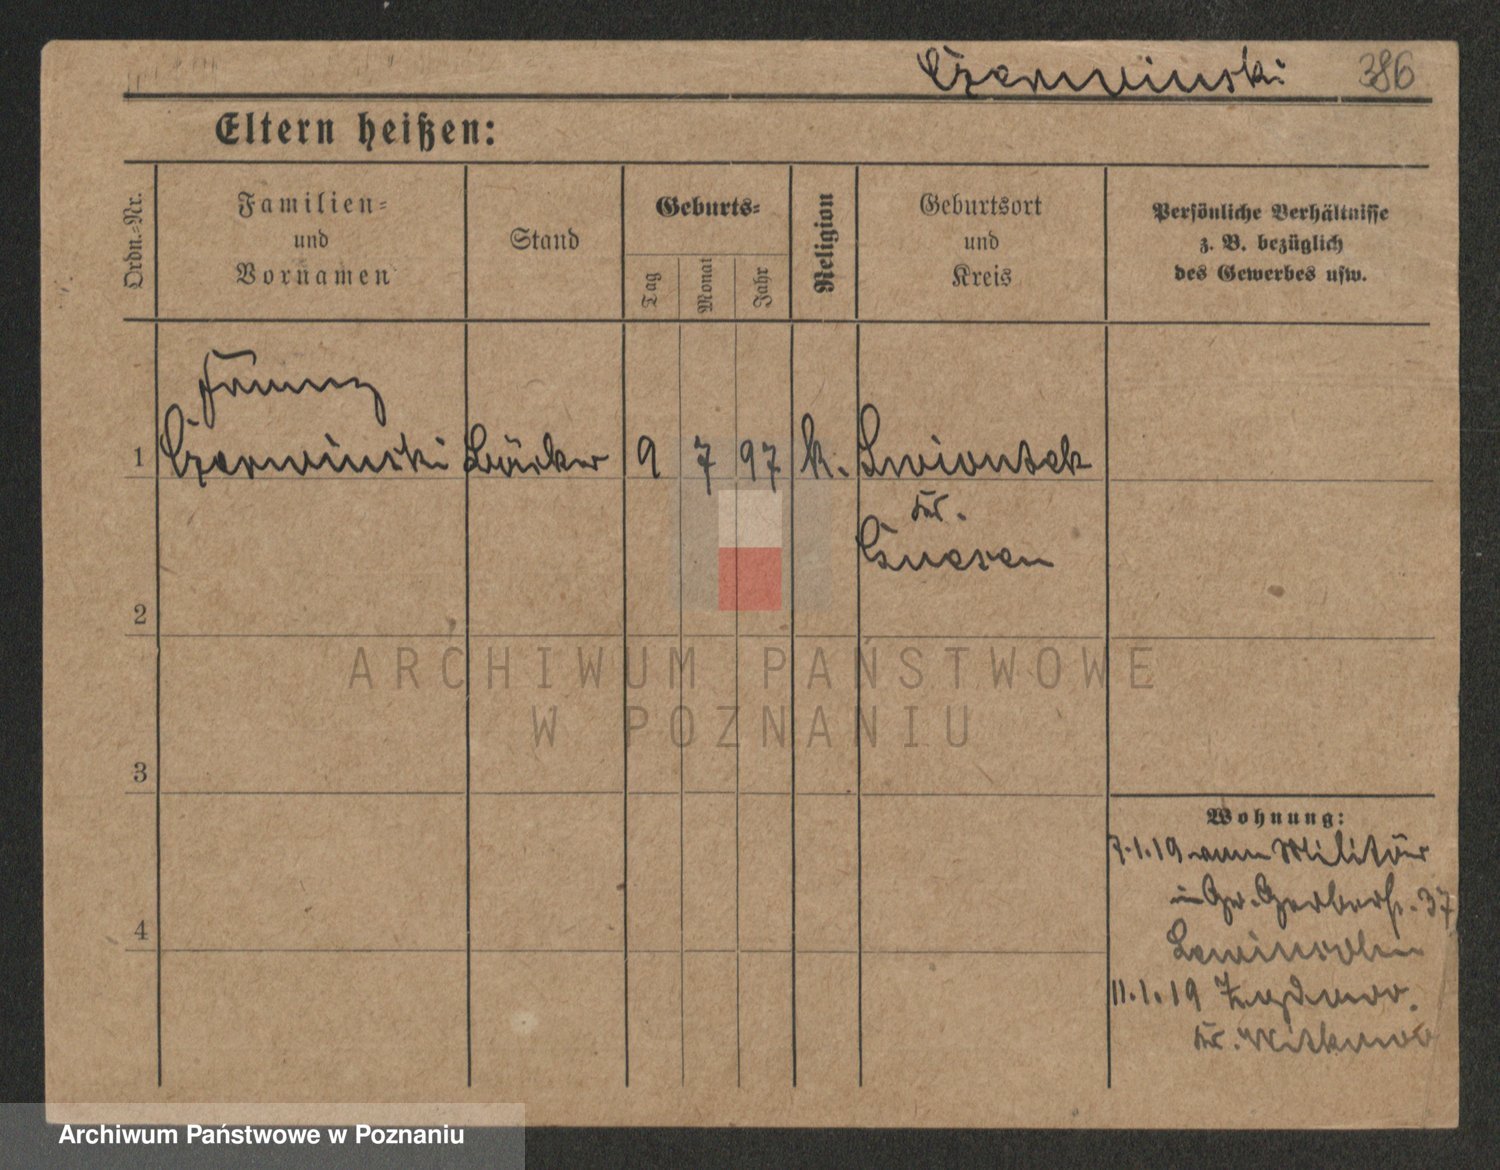 Czerwinski 386
Eltern heißen:
Ordn.-Nr.
Familien-
und
Vornamen
Stand
Geburts-
Tag
Monat
Jahr
Religion
Geburtsort
und
Kreis
Persönliche Verhältnisse
z. B. bezüglich
des Gewerbes usw.
Franz
1 Czerwinski Bäcker 9 7 97 k. Lwiontek
Kr.
Gnesen
2
3
4
Wohnung:
7.1.19 vom Militär
in Gr. Gerberst. 37
Lewinsohn
11.1.19
Kr. Witkowo
ARCHIWUM PAŃSTWOWE
W POZNANIU
Archiwum Państwowe w Poznaniu